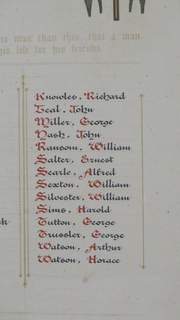 man than this, that a man
his life for his friends.
Knowles, Richard
Teal, John
Miller, George
Nash, John
Ransom, William
Salter, Ernest
Searle, Alfred
Sexton, William
Silvester, William
Sims, Harold
Tutton, George
Trussler, George
Watson, Arthur
Watson, Horace